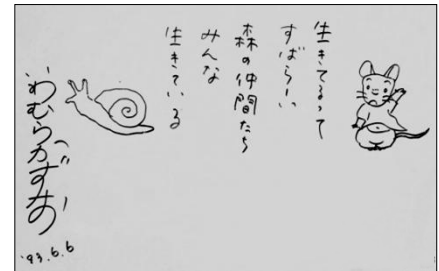 生きてるって
すばらしい
森の仲間たち
みんな
生きている
いわむらかずお
'93.6.6